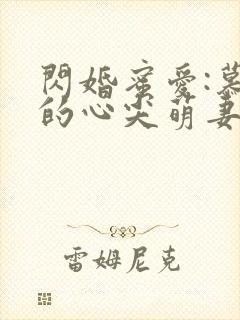 閃婚蜜愛:慕
的心尖萌妻
雷姆尼克